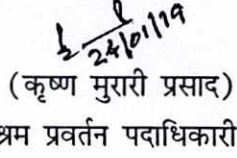 24/01/19
(कृष्ण मुरारी प्रसाद)
श्रम प्रवर्तन पदाधिकारी